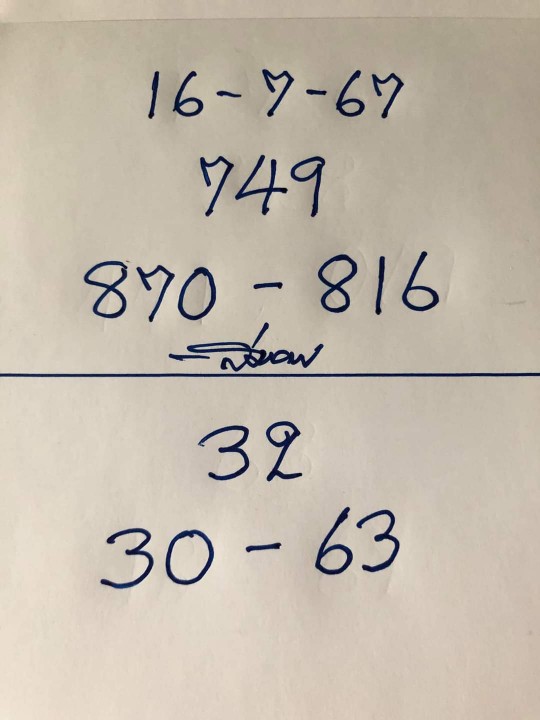 16-7-67
749
870 - 816
32
30 - 63